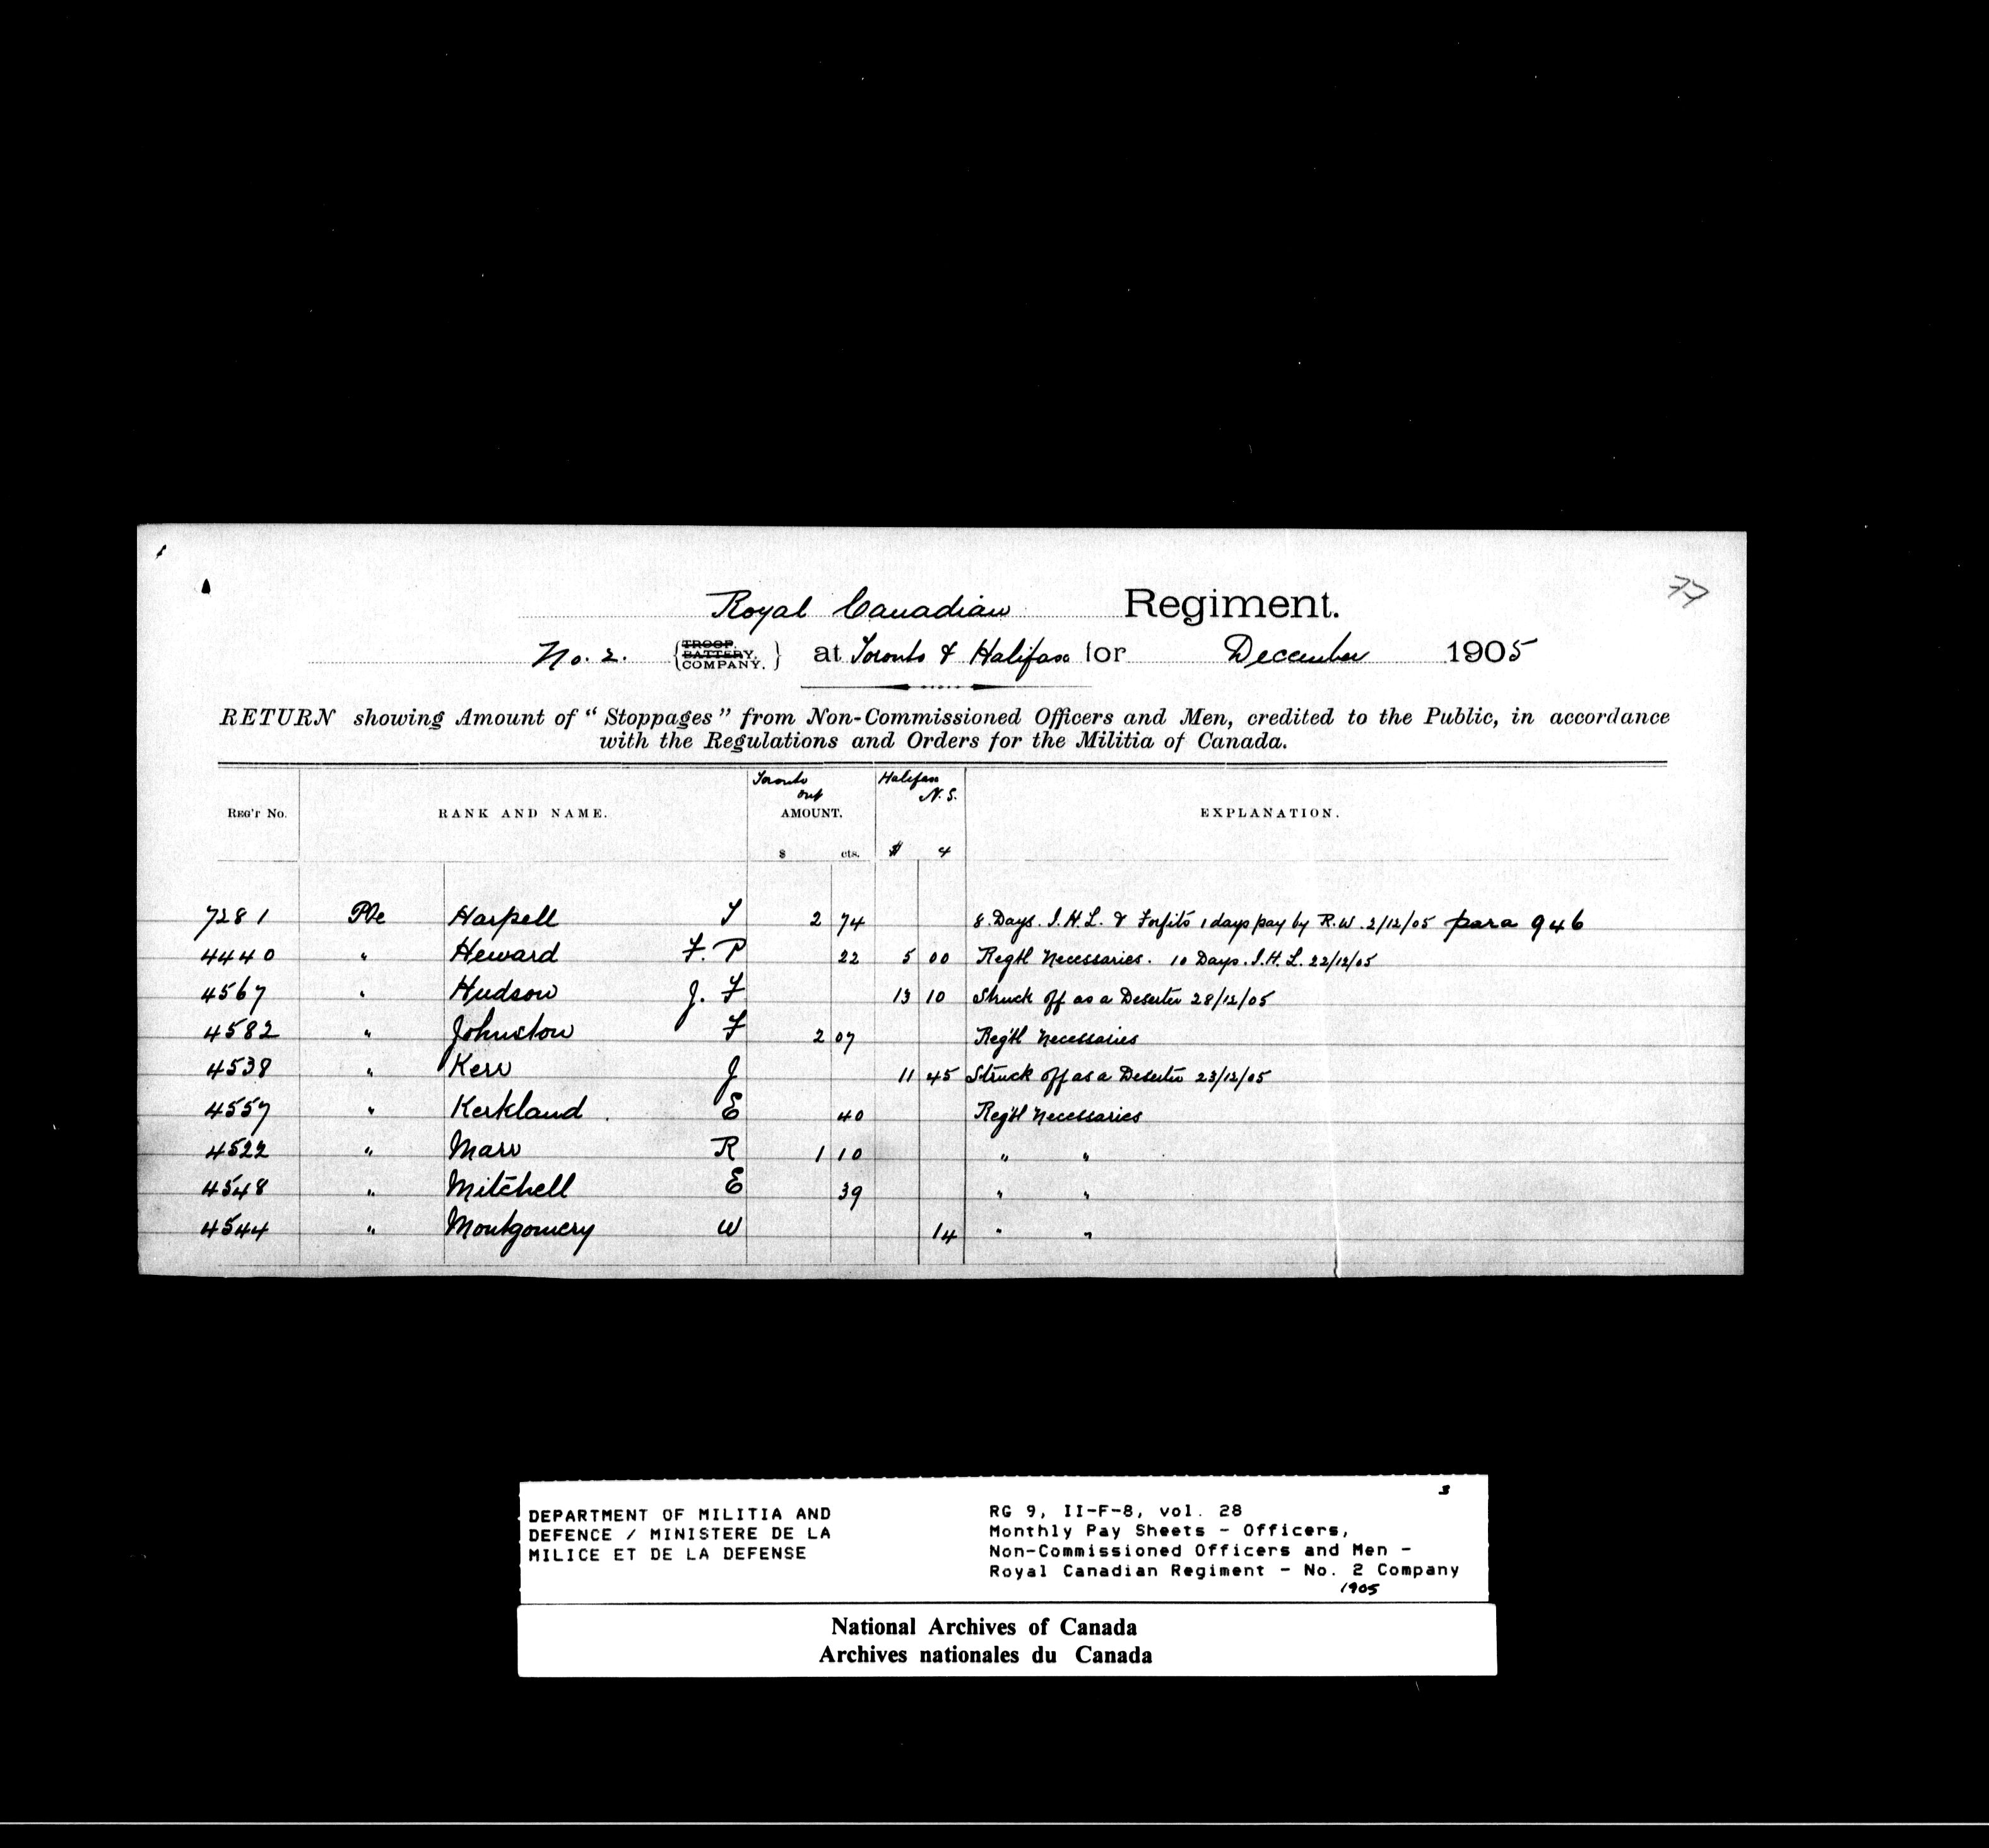 77
Royal Canadian Regiment.
No. 2. {TROOP. BATTERY. COMPANY.} at Toronto & Halifax for December 1905
RETURN showing Amount of "Stoppages" from Non-Commissioned Officers and Men, credited to the Public, in accordance
with the Regulations and Orders for the Militia of Canada.
REG'T No. RANK AND NAME. Toronto Ont AMOUNT. $ cts. Halifax N.S. $ ¢ EXPLANATION.
7281 Pte Harpell T 2 74 8 Days. I.H.L. & Forfits 1 days pay by R.W. 2/12/05 para 946
4440 " Heward F. P 22 5 00 Regtl Necessaries. 10 Days. I.H.L. 22/12/05
4567 " Hudson J. F 13 10 Struck off as a Deserter 28/12/05
4582 " Johnston F 2 07 Reg'tl Necessaries
4538 " Kerr J 11 45 Struck off as a Deserter 23/12/05
4557 " Kerkland. E 40 Reg'tl Necessaries
4522 " Marr R 1 10 " "
4548 " Mitchell E 39 " "
4544 " Montgomery W 14 " "
3
DEPARTMENT OF MILITIA AND
DEFENCE / MINISTERE DE LA
MILICE ET DE LA DEFENSE
RG 9, II-F-8, vol. 28
Monthly Pay Sheets - Officers,
Non-Commissioned Officers and Men -
Royal Canadian Regiment - No. 2 Company
1905
National Archives of Canada
Archives nationales du Canada